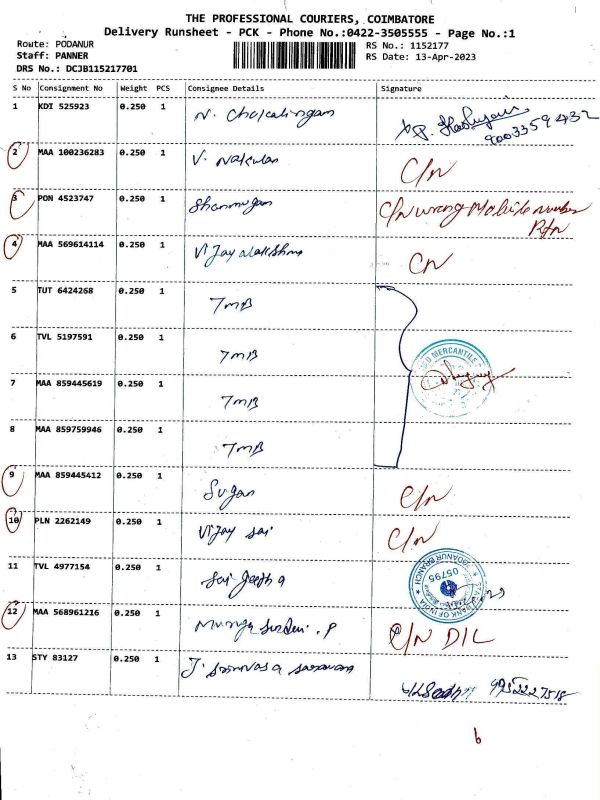 THE PROFESSIONAL COURIERS, COIMBATORE
Delivery Runsheet - PCK - Phone No.:0422-3505555 - Page No.:1
Route: PODANUR
RS No.: 1152177
Staff: PANNER
RS Date: 13-Apr-2023
DRS No.: DCJB115217701
S No Consignment No Weight PCS Consignee Details Signature
1 KDI 525923 0.250 1 N. Chokalingam
2 MAA 100236283 0.250 1 V. Nakulan C/N
3 PON 4523747 0.250 1 Shanmugam C/N wrong Mobile number
4 MAA 569614114 0.250 1 Vijayalakshmi CN
5 TUT 6424268 0.250 1 TMB
6 TVL 5197591 0.250 1 TMB
7 MAA 859445619 0.250 1 TMB
8 MAA 859759946 0.250 1 TMB
MERCANTILE
9 MAA 859445412 0.250 1 Sugan C/N
10 PLN 2262149 0.250 1 Vijay sai C/N
11 TVL 4977154 0.250 1
BANK OF INDIA
PODANUR BRANCH
05795
12 MAA 568961216 0.250 1 C/N D/L
13 STY 83127 0.250 1 J.
6